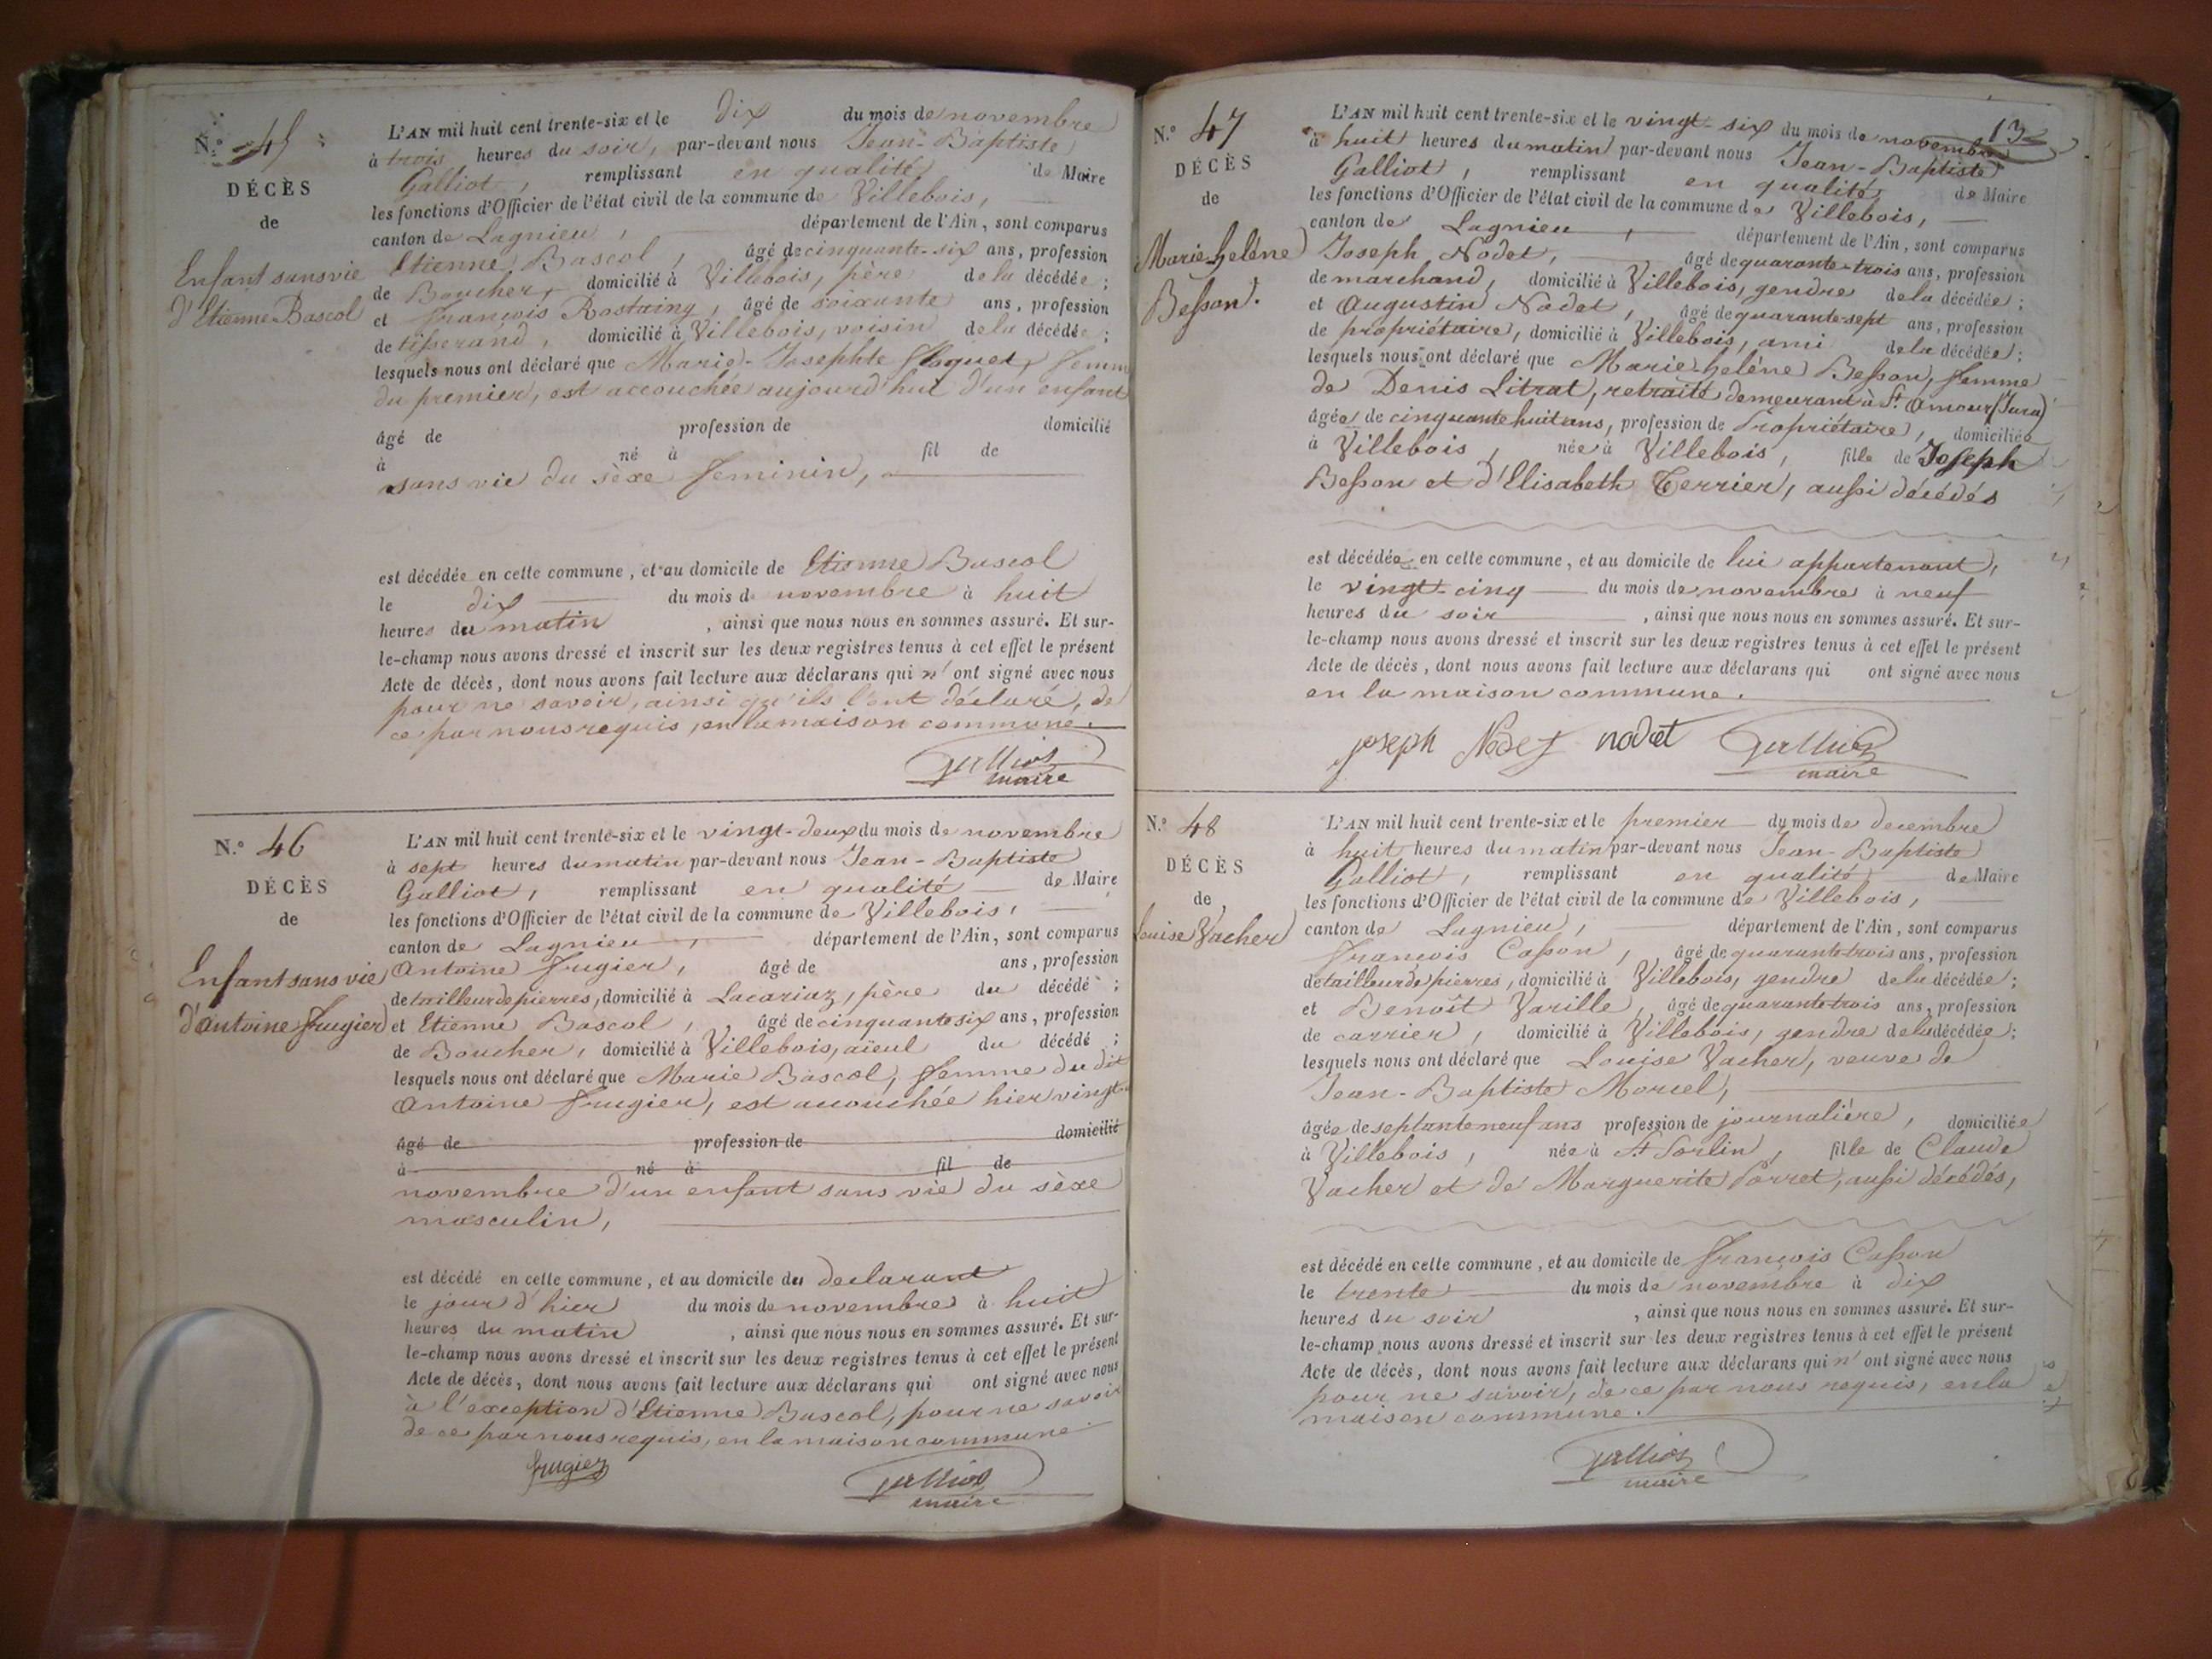 N.º 45
DÉCÈS
de
Enfant sans vie
d'Etienne Bascol
L'AN mil huit cent trente-six et le dix du mois de novembre
à trois heures du soir, par-devant nous Jean-Baptiste
Galliot, remplissant en qualité de Maire
les fonctions d'Officier de l'état civil de la commune de Villebois,
canton de Lagnieu, département de l'Ain, sont comparus
Etienne Bascol, âgé de cinquante-six ans, profession
de Boucher, domicilié à Villebois, père de la décédée;
et françois Rostaing, âgé de soixante ans, profession
de tisserand, domicilié à Villebois, voisin de la décédée;
lesquels nous ont déclaré que Marie-Josephte femm
du premier, est accouchée aujourd'hui d'un enfant
âgé de profession de domicilié
à né à fil de
sans vie du sèxe feminin,
est décédée en cette commune, et au domicile de Etienne Bascol
le dix du mois de novembre à huit
heures du matin, ainsi que nous nous en sommes assuré. Et sur-
le-champ nous avons dressé et inscrit sur les deux registres tenus à cet effet le présent
Acte de décès, dont nous avons fait lecture aux déclarans qui n'ont signé avec nous
pour ne savoir, ainsi qu'ils l'ont déclaré, de
ce par nous requis, en la maison commune.
Galliot
maire
N.º 46
DÉCÈS
de
Enfant sans vie
d'antoine frugier
L'AN mil huit cent trente-six et le vingt-deux du mois de novembre
à sept heures du matin par-devant nous Jean-Baptiste
Galliot, remplissant en qualité de Maire
les fonctions d'Officier de l'état civil de la commune de Villebois,
canton de Lagnieu, département de l'Ain, sont comparus
antoine frugier, âgé de ans, profession
de tailleur de pierres, domicilié à Lacariaz, père du décédé;
et Etienne Bascol, âgé de cinquante six ans, profession
de Boucher, domicilié à Villebois, aïeul du décédé;
lesquels nous ont déclaré que Marie Bascol, femme du dit
antoine frugier, est accouchée hier vingt-un
âgé de profession de domicilié
à né à fil de
novembre d'un enfant sans vie du sèxe
masculin,
est décédé en cette commune, et au domicile du declarant
le jour d'hier du mois de novembre à huit
heures du matin, ainsi que nous nous en sommes assuré. Et sur-
le-champ nous avons dressé et inscrit sur les deux registres tenus à cet effet le présent
Acte de décès, dont nous avons fait lecture aux déclarans qui ont signé avec nous
à l'exception d'Etienne Bascol, pour ne savoir
de ce par nous requis, en la maison commune
frugier
Galliot
maire
132
N.º 47
DÉCÈS
de
Marie helène
Besson.
L'AN mil huit cent trente-six et le vingt-six du mois de novembre
à huit heures du matin par-devant nous Jean-Baptiste
Galliot, remplissant en qualité de Maire
les fonctions d'Officier de l'état civil de la commune de Villebois,
canton de Lagnieu, département de l'Ain, sont comparus
Joseph Nodet, âgé de quarante-trois ans, profession
de marchand, domicilié à Villebois, gendre de la décédée;
et augustin Nodet, âgé de quarante-sept ans, profession
de propriétaire, domicilié à Villebois, ami de la décédée;
lesquels nous ont déclaré que Marie-helène Besson, femme
de Denis Litrat, retraité demeurant à St. amour (Jura)
âgée de cinquante huit ans, profession de Propriétaire, domiciliée
à Villebois, née à Villebois, fille de Joseph
Besson et d'Elisabeth Terrier, aussi décédés
est décédée en cette commune, et au domicile de lui appartenant,
le vingt-cinq du mois de novembre à neuf
heures du soir, ainsi que nous nous en sommes assuré. Et sur-
le-champ nous avons dressé et inscrit sur les deux registres tenus à cet effet le présent
Acte de décès, dont nous avons fait lecture aux déclarans qui ont signé avec nous
en la maison commune.
joseph Nodet nodet Galliot
maire
N.º 48
DÉCÈS
de
Louise Vacher
L'AN mil huit cent trente-six et le premier du mois de decembre
à huit heures du matin par-devant nous Jean-Baptiste
Galliot, remplissant en qualité de Maire
les fonctions d'Officier de l'état civil de la commune de Villebois,
canton de Lagnieu, département de l'Ain, sont comparus
françois Casson, âgé de quarante-trois ans, profession
de tailleur de pierres, domicilié à Villebois, gendre de la décédée;
et Benoît Varille, âgé de quarante-trois ans, profession
de carrier, domicilié à Villebois, gendre de la décédée;
lesquels nous ont déclaré que Louise Vacher, veuve de
Jean-Baptiste Morcel,
âgée de septante neuf ans profession de journalière, domiciliée
à Villebois, née à St Sorlin, fille de Claude
Vacher et de Marguerite Porret, aussi décédés,
est décédé en cette commune, et au domicile de françois Casson
le trente du mois de novembre à dix
heures du soir, ainsi que nous nous en sommes assuré. Et sur-
le-champ nous avons dressé et inscrit sur les deux registres tenus à cet effet le présent
Acte de décès, dont nous avons fait lecture aux déclarans qui n'ont signé avec nous
pour ne savoir, de ce par nous requis, en la
maison commune.
Galliot
maire